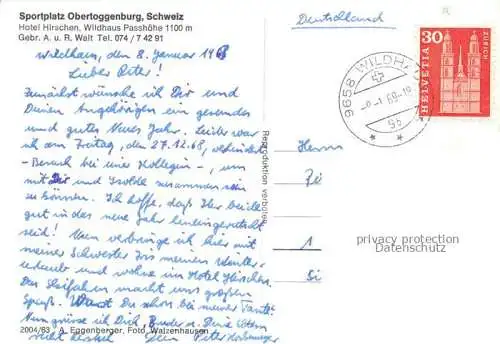 Sportplatz Obertoggenburg, Schweiz
Hotel Hirschen, Wildhaus Passhöhe 1100 m
Gebr. A. u. R. Walt Tel. 074 / 7 42 91
Wildhaus, den 8. Januar 196
Lieber Peter!
Zunächst wünsche ich Dir und
Deinen Angehörigen ein gesundes
und gutes Neues Jahr. Leider war
ich am Freitag, den 27.12.68, verhindert
- Besuch bei einer Kollegin -, um
mit Dir und Isolde zusammen sein
zu können. Ich hoffe, daß Ihr beide
gut in das neue Jahr hineingerutscht
seid! Nun verbringe ich hier mit
meiner Schwester Iris meinen Winter-
urlaub und wohne im Hotel Hirschen.
Das Skifahren macht uns großen
Spaß. Warst Du schon bei meiner Tante?
Nun grüße ich Dich, Bruder u. Deine Eltern
recht herzlich Dein Peter
2004/63 A. Eggenberger, Foto, Walzenhausen
Reproduktion verboten
Deutschland
9658 WILDH
-8.-1.69-18
9b
30
HELVETIA
ZÜRICH
Herrn
1
privacy protection
Datenschutz